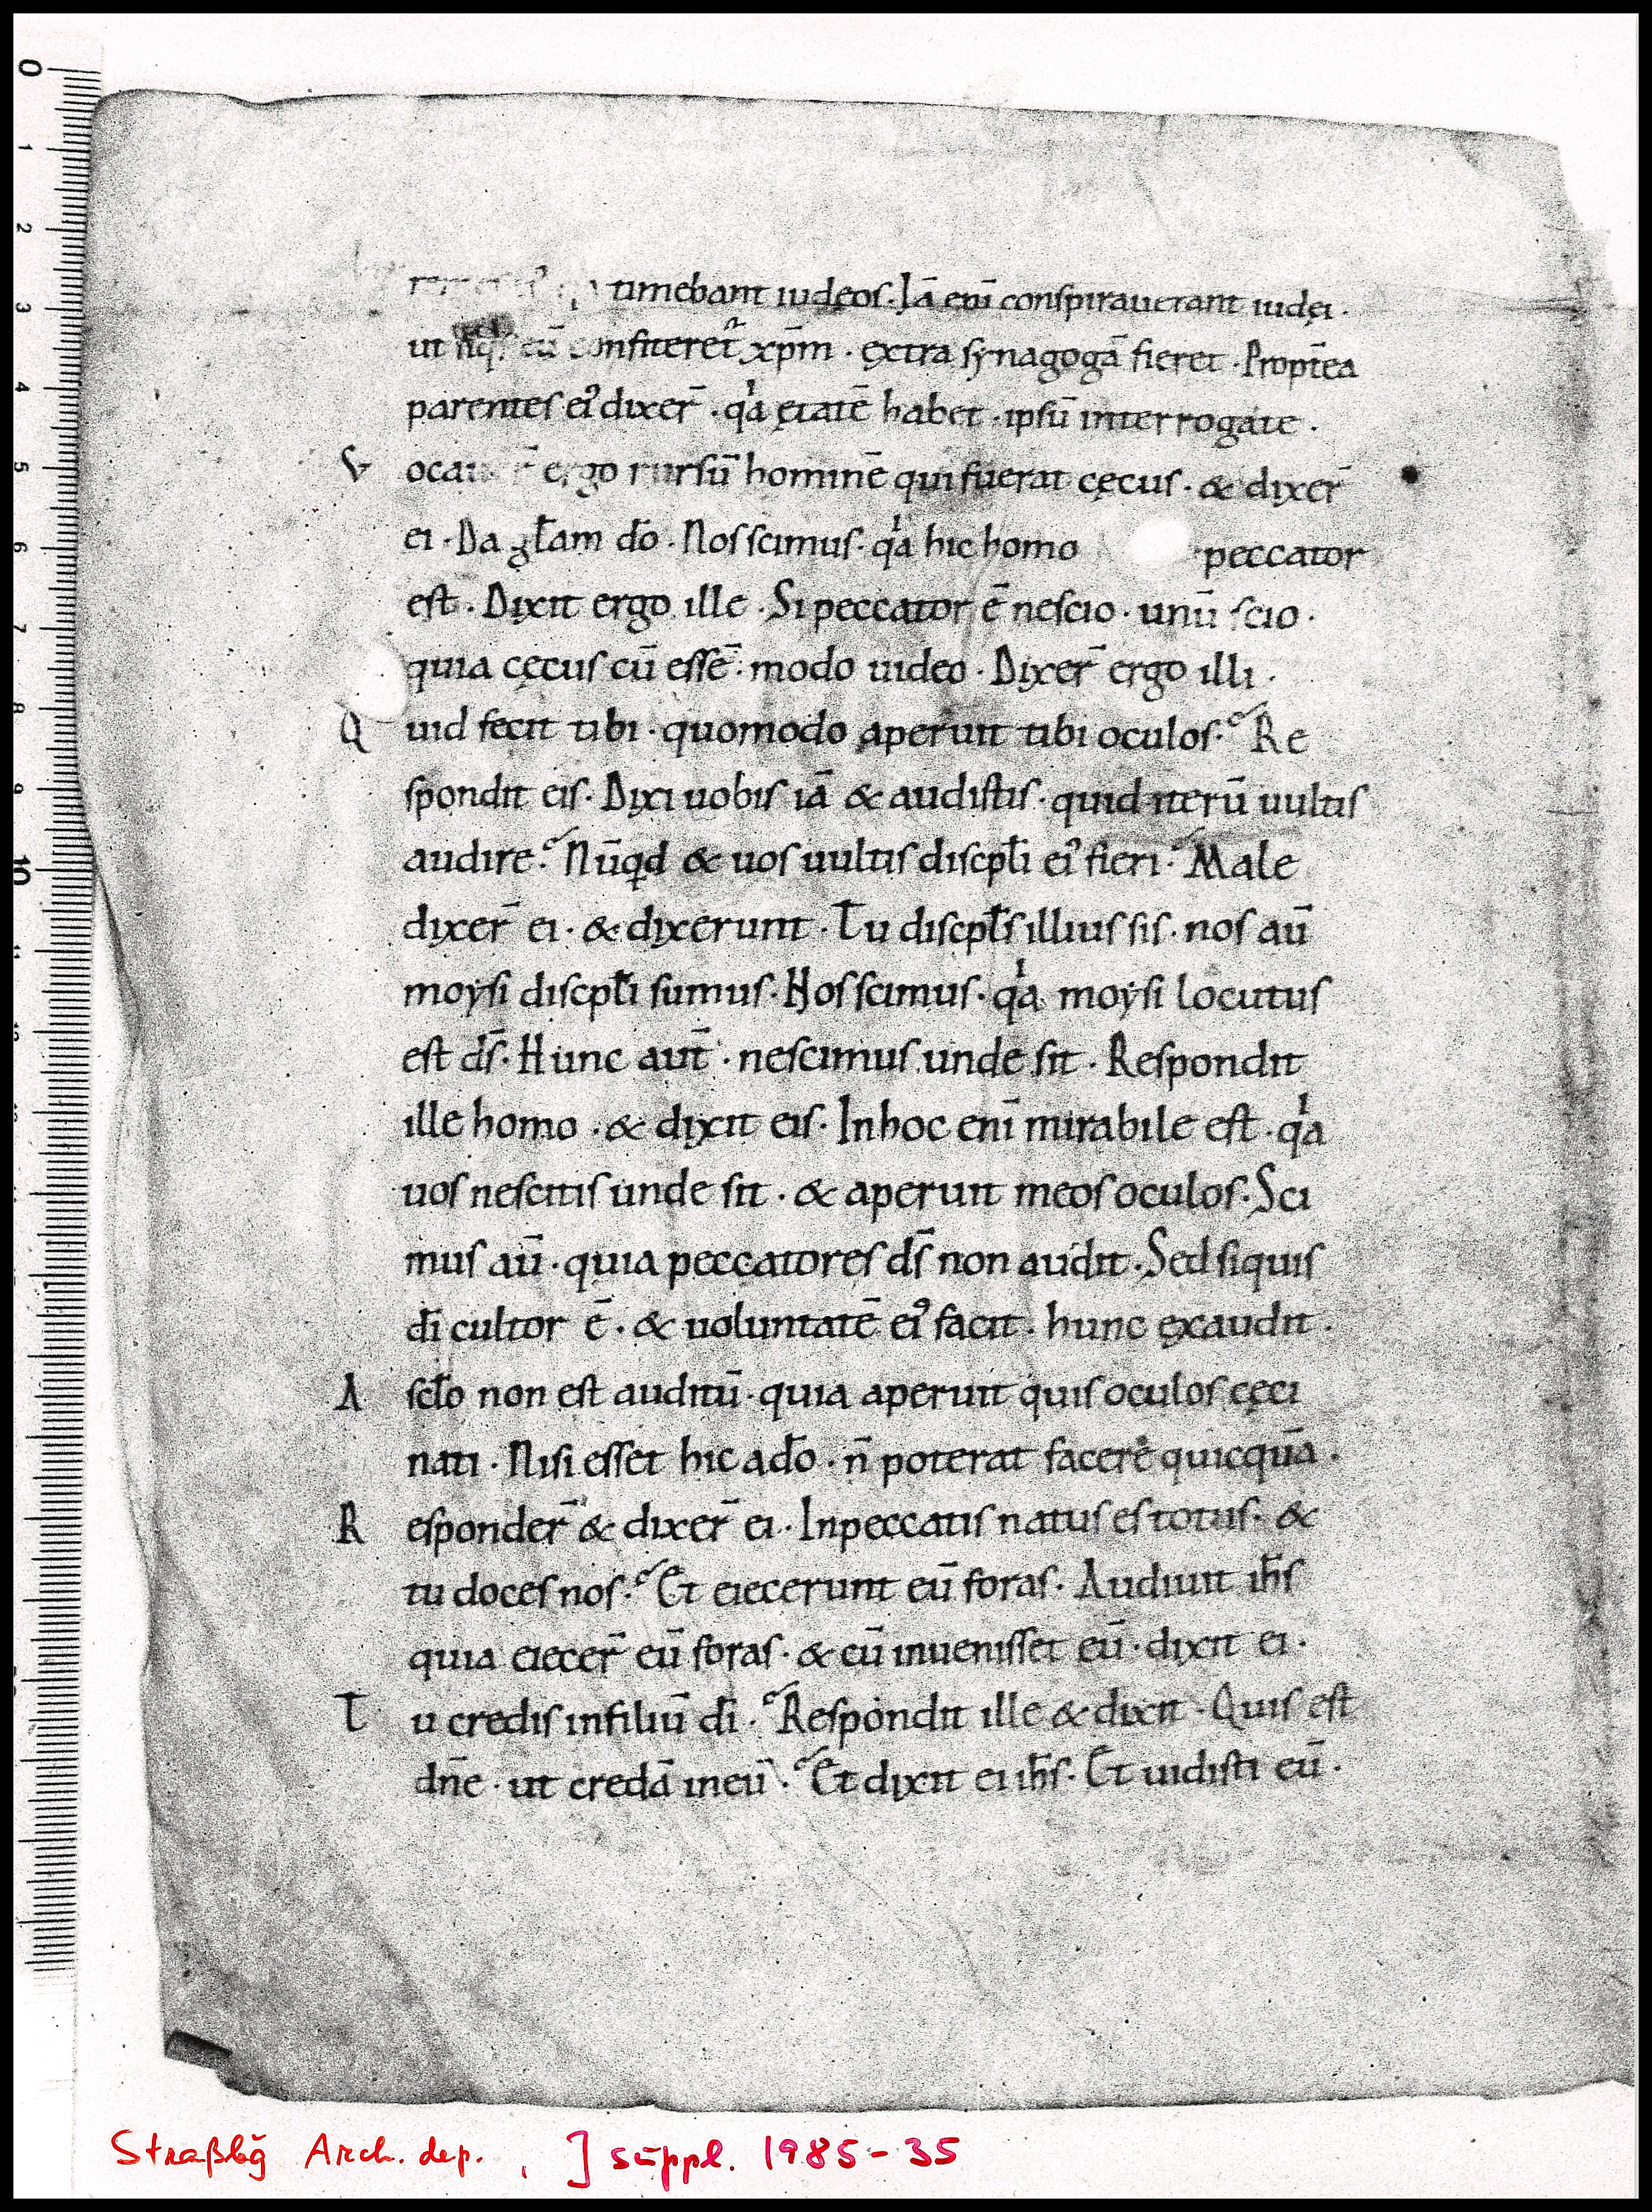 timebant iudęos. Iā eni̅ conspirauerant iudęi.
ut cū confiteret᷑ xp̄m. extra synagogā fieret. Propt̄ea
parentes ei᷒ dixer̄. qͥa ętatē habet. ipsū interrogate.
V ergo rursū hominē qui fuerat cęcus. & dixer̄
ei. Da gl̄am dō. Nos scimus. qͥa hic homo peccator
est. Dixit ergo ille. Si peccator ē nescio. unū scio.
quia cęcus cū essē. modo uideo. Dixer̄ ergo illi.
Quid fecit tibi. quomodo aperuit tibi oculos. Re
spondit eis. Dixi uobis iā & audistis. quid iterū uultis
audire. Nūqd & uos uultis discpl̄i ei᷒ fieri. Male
dixer̄ ei. & dixerunt. Tu discpl̄s illius sis. nos au̅
moysi discpl̄i sumus. Nos scimus. qͥa moysi locutus
est d̄s. Hunc aut̄. nescimus unde sit. Respondit
ille homo. & dixit eis. In hoc eni̅ mirabile est. qͥa
uos nescitis unde sit. & aperuit meos oculos. Sci
mus au̅. quia peccatores d̄s non audit. Sed siquis
d̄i cultor ē. & uoluntatē ei᷒ facit. hunc exaudit.
A scl̄o non est auditū. quia aperuit quis oculos cęci
nati. Nisi esset hic ad̄o. n̄ poterat facere quicquā.
Responder̄ & dixer̄ ei. Inpeccatis natus es totus. &
tu doces nos. Et eiecerunt eū foras. Audiuit ih̄s
quia eiecer̄ eū foras. & cū inuenisset eū. dixit ei.
Tu credis infiliū d̄i. Respondit ille & dixit. Quis est
dn̄e. ut credā ineū. Et dixit ei ih̄s. Et uidisti eū.
Straßbg̅ Arch. dep., J suppl. 1985-35
0
1
2
3
4
5
6
7
8
9
10